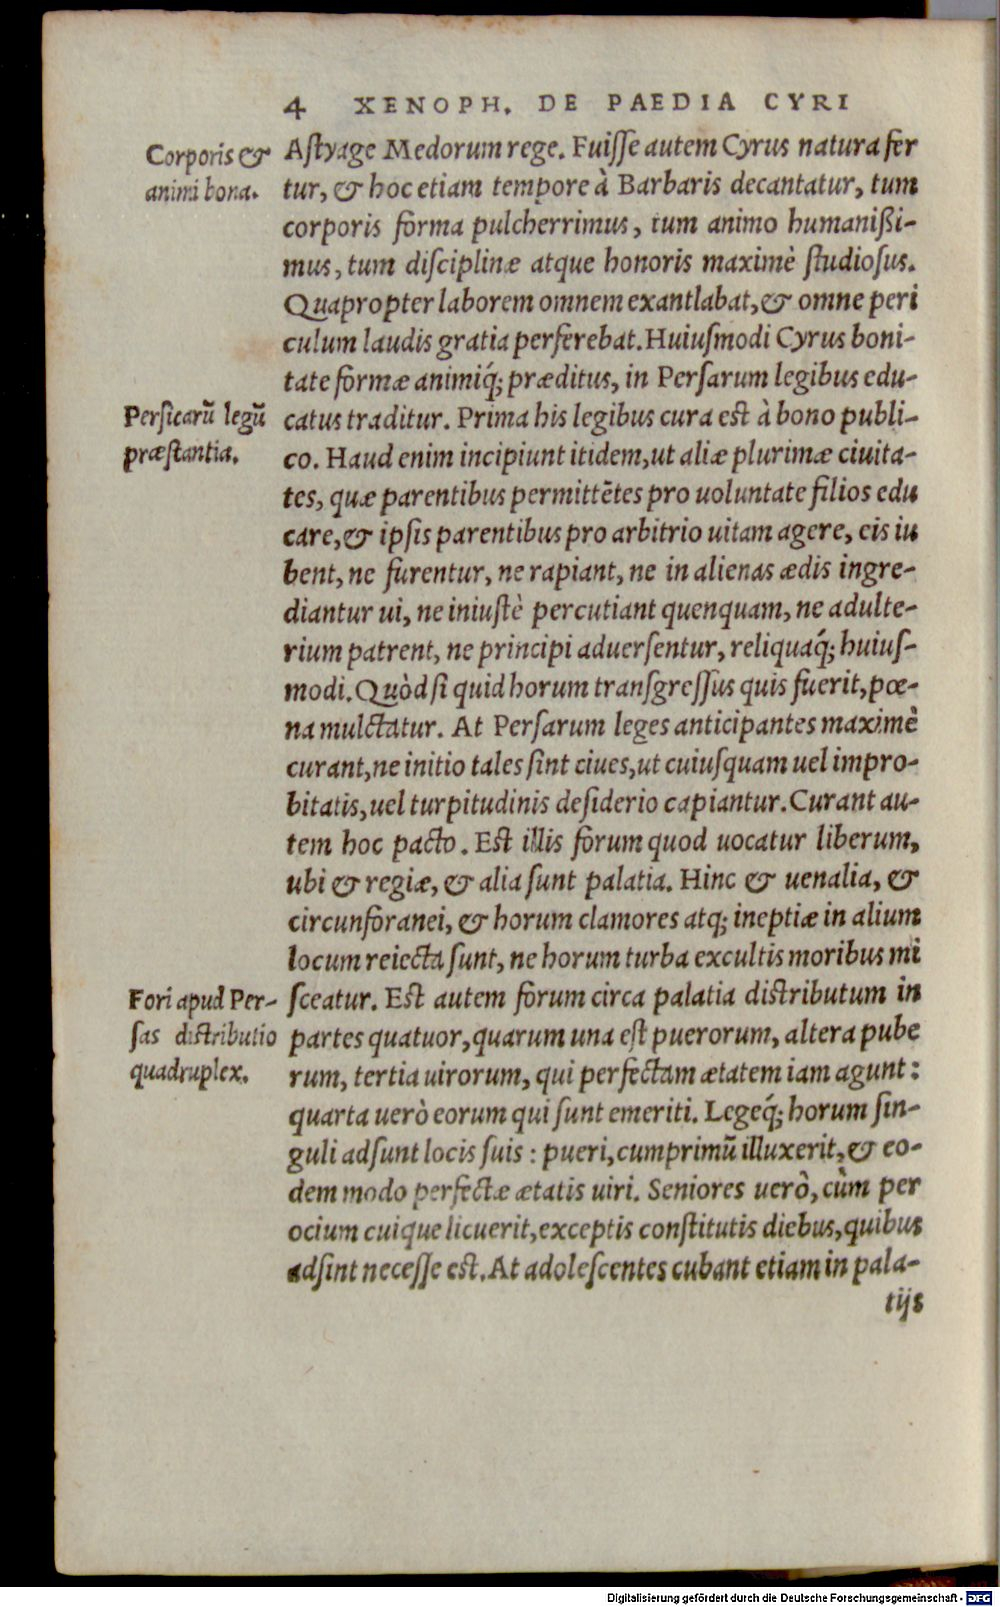 4 XENOPH. DE PAEDIA CYRI
Corporis &
animi bona.
Aſtyage Medorum rege. Fuiſſe autem Cyrus natura fer
tur, & hoc etiam tempore à Barbaris decantatur, tum
corporis forma pulcherrimus, tum animo humanißi-
mus, tum diſciplinæ atque honoris maximè ſtudioſus.
Quapropter laborem omnem exantlabat, & omne peri
culum laudis gratia perferebat. Huiuſmodi Cyrus boni-
tate formæ animiq́; præditus, in Perſarum legibus edu-
Perſicarū legū
præſtantia.
catus traditur. Prima his legibus cura eſt à bono publi-
co. Haud enim incipiunt itidem, ut aliæ plurimæ ciuita-
tes, quæ parentibus permittētes pro uoluntate filios edu
care, & ipſis parentibus pro arbitrio uitam agere, eis iu
bent, ne furentur, ne rapiant, ne in alienas ædis ingre-
diantur ui, ne iniuſtè percutiant quenquam, ne adulte-
rium patrent, ne principi aduerſentur, reliquaq́; huiuſ-
modi. Quòd ſi quid horum tranſgreſſus quis fuerit, pœ-
na mulctatur. At Perſarum leges anticipantes maximè
curant, ne initio tales ſint ciues, ut cuiuſquam uel impro-
bitatis, uel turpitudinis deſiderio capiantur. Curant au-
tem hoc pacto. Eſt illis forum quod uocatur liberum,
ubi & regiæ, & alia ſunt palatia. Hinc & uenalia, &
circunforanei, & horum clamores atq; ineptiæ in alium
locum reiecta ſunt, ne horum turba excultis moribus mi
Fori apud Per-
ſas diſtributio
quadruplex.
ſceatur. Eſt autem forum circa palatia diſtributum in
partes quatuor, quarum una eſt puerorum, altera pube
rum, tertia uirorum, qui perfectam ætatem iam agunt:
quarta uerò eorum qui ſunt emeriti. Legeq́; horum ſin-
guli adſunt locis ſuis: pueri, cumprimū illuxerit, & eo-
dem modo perfectæ ætatis uiri. Seniores uerò, cùm per
ocium cuique licuerit, exceptis conſtitutis diebus, quibus
adſint neceſſe eſt. At adoleſcentes cubant etiam in pala-
tijs
Digitalisierung gefördert durch die Deutsche Forschungsgemeinschaft - DFG